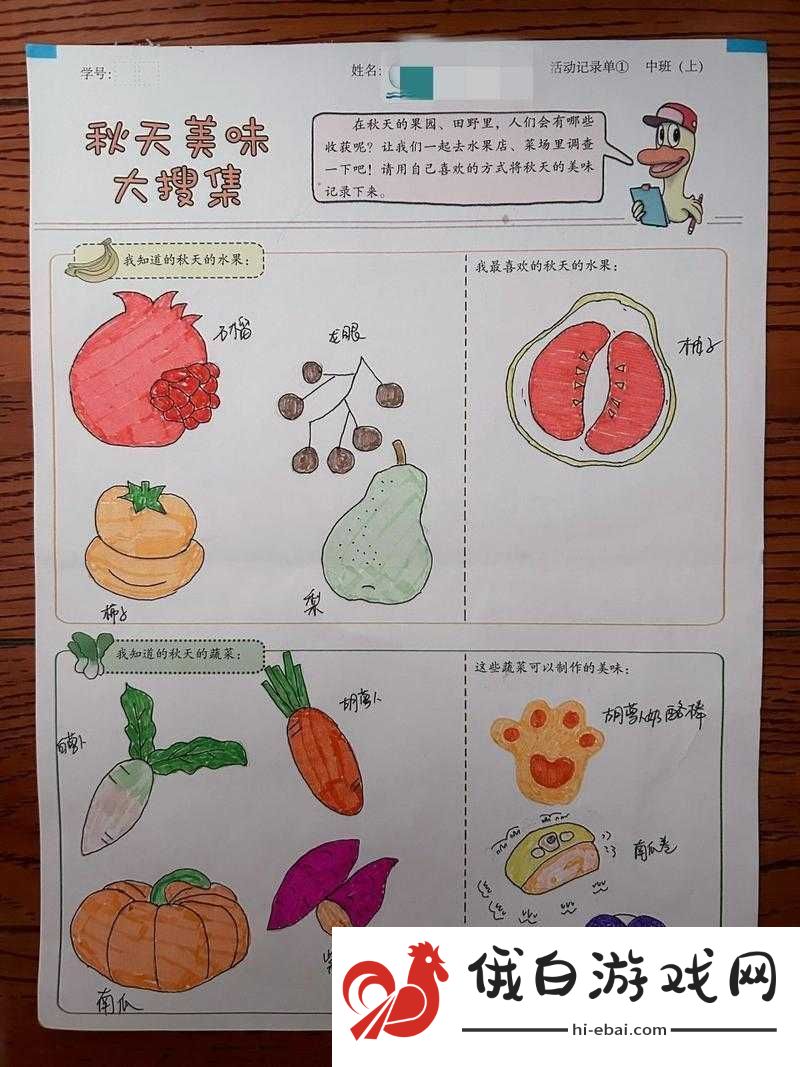 学号:
姓名:
活动记录单① 中班（上）
秋天美味
大搜集
在秋天的果园、田野里，人们会有哪些
收获呢？让我们一起去水果店、菜场里调查
一下吧！请用自己喜欢的方式将秋天的美味
记录下来。
我知道的秋天的水果：
我最喜欢的秋天的水果：
石榴
龙眼
柚子
柿子
梨
我知道的秋天的蔬菜：
这些蔬菜可以制作的美味：
白萝卜
胡萝卜
胡萝卜奶酪棒
南瓜卷
南瓜
紫
俄白游戏网
hi-ebai.com